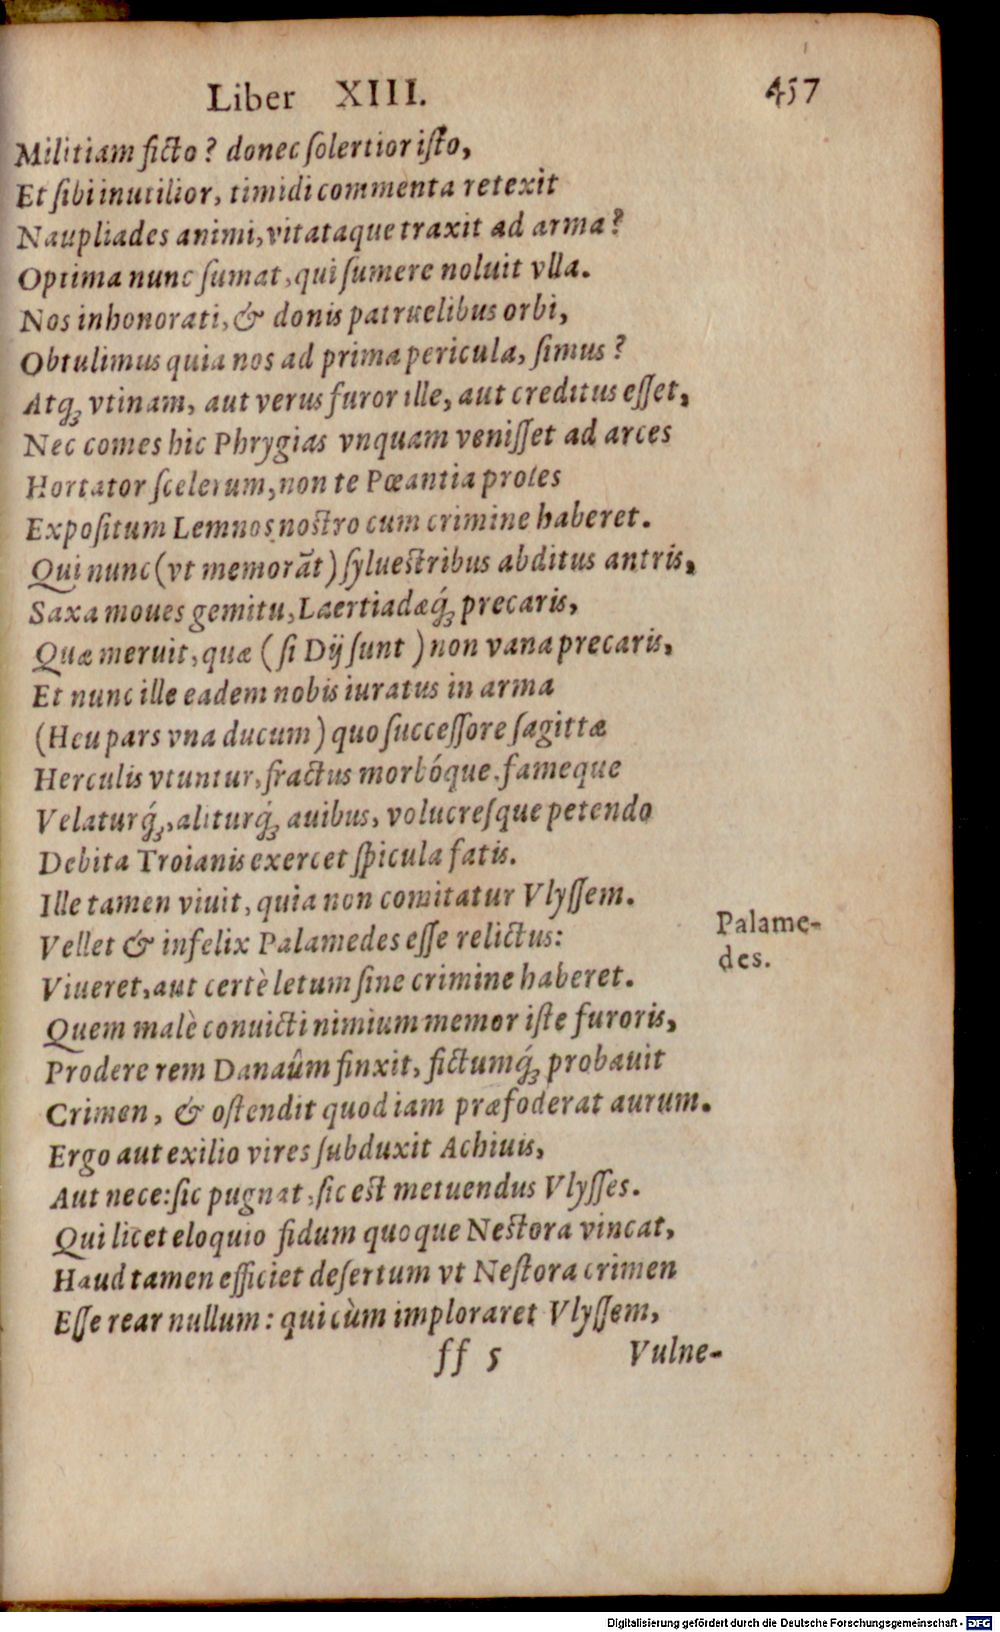 Liber XIII. 457
Militiam ficto? donec ſolertior iſto,
Et ſibi inutilior, timidi commenta retexit
Naupliades animi, vitataque traxit ad arma?
Optima nunc ſumat, qui ſumere noluit vlla.
Nos inhonorati, & donis patruelibus orbi,
Obtulimus quia nos ad prima pericula, ſimus?
Atq́ꝫ vtinam, aut verus furor ille, aut creditus eſſet,
Nec comes hic Phrygias vnquam veniſſet ad arces
Hortator ſcelerum, non te Pœantia proles
Expoſitum Lemnos noſtro cum crimine haberet.
Qui nunc (vt memorãt) ſylueſtribus abditus antris,
Saxa moues gemitu, Laertiadæq́ꝫ precaris,
Quæ meruit, quæ (ſi Dij ſunt) non vana precaris,
Et nunc ille eadem nobis iuratus in arma
(Heu pars vna ducum) quo ſucceſſore ſagittæ
Herculis vtuntur, fractus morbóque. fameque
Velaturq́ꝫ, aliturq́ꝫ auibus, volucreſque petendo
Debita Troianis exercet ſpicula fatis.
Ille tamen viuit, quia non comitatur Vlyſſem.
Vellet & infelix Palamedes eſſe relictus:
Palame-
des.
Viueret, aut certè letum ſine crimine haberet.
Quem malè conuicti nimium memor iſte furoris,
Prodere rem Danaûm finxit, fictumq́ꝫ probauit
Crimen, & oſtendit quod iam præfoderat aurum.
Ergo aut exilio vires ſubduxit Achiuis,
Aut nece: ſic pugnat, ſic eſt metuendus Vlyſſes.
Qui licet eloquio fidum quoque Neſtora vincat,
Haud tamen efficiet deſertum vt Neſtora crimen
Eſſe rear nullum: qui cùm imploraret Vlyſſem,
ff 5 Vulne-
Digitalisierung gefördert durch die Deutsche Forschungsgemeinschaft - DFG